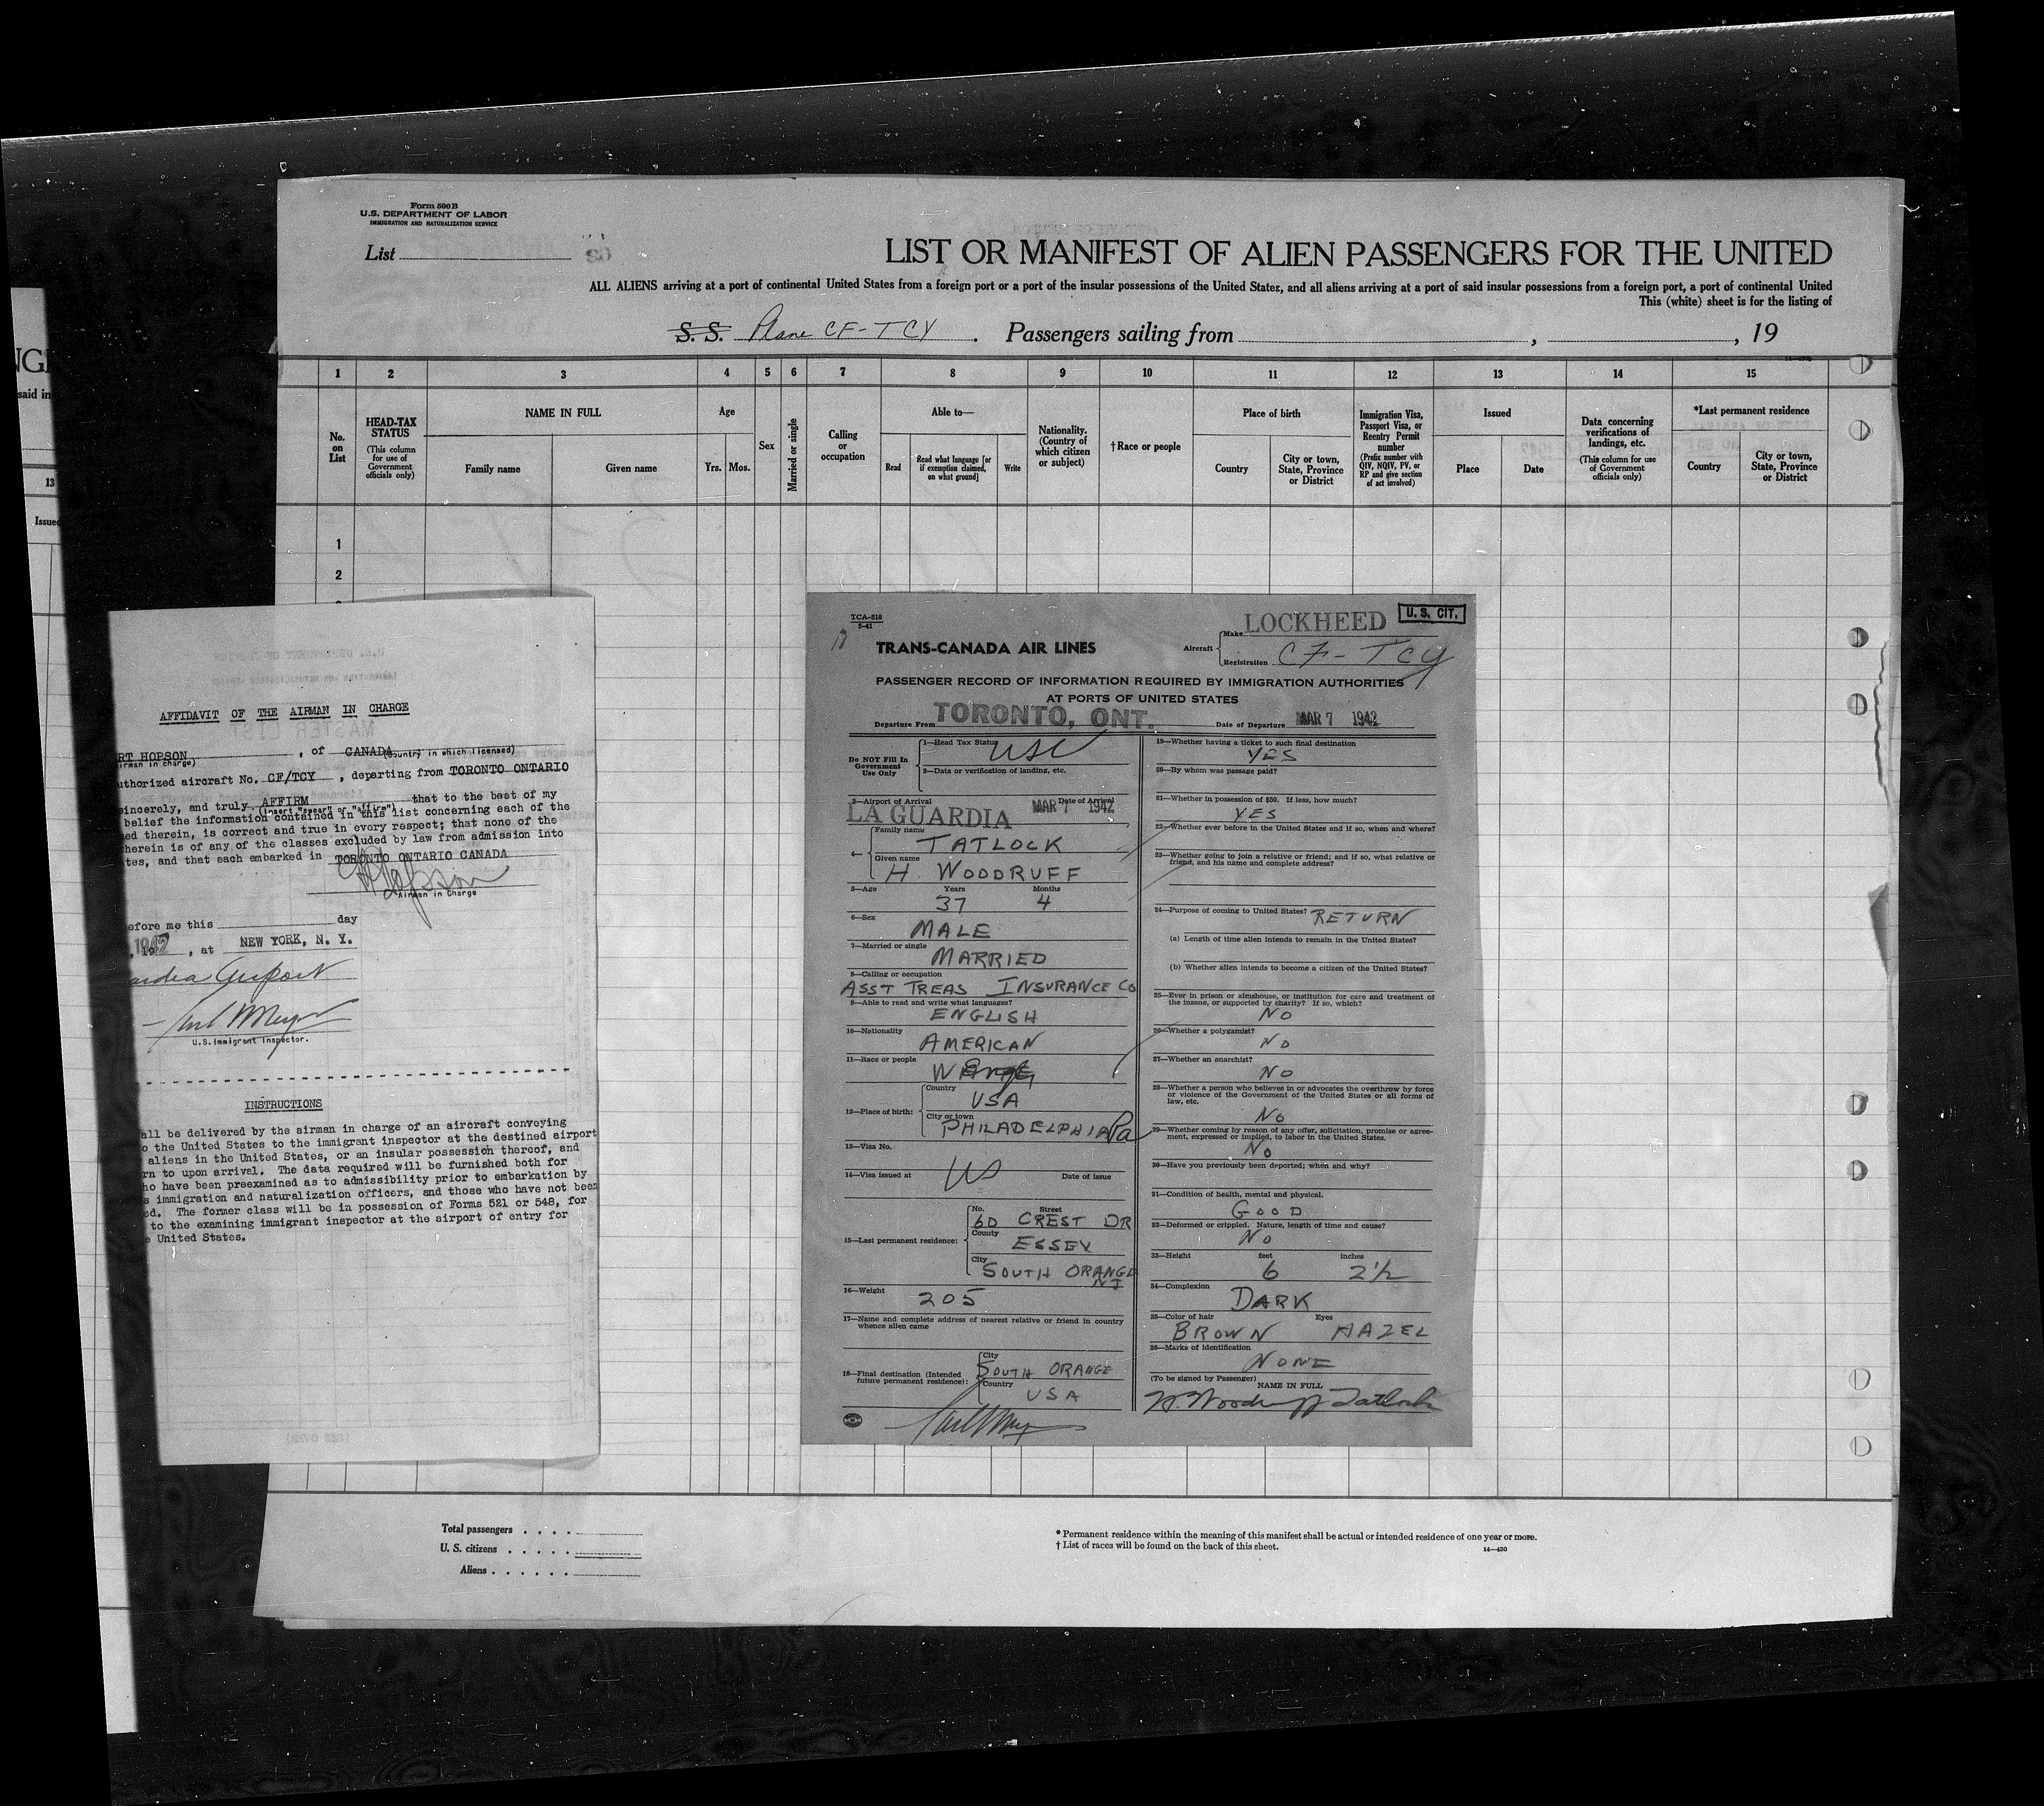 NG
said in
13
Issued
Form 500 B
U.S. DEPARTMENT OF LABOR
IMMIGRATION AND NATURALIZATION SERVICE
List
LIST OR MANIFEST OF ALIEN PASSENGERS FOR THE UNITED
ALL ALIENS arriving at a port of continental United States from a foreign port or a port of the insular possessions of the United States, and all aliens arriving at a port of said insular possessions from a foreign port, a port of continental United
This (white) sheet is for the listing of
S. S. Plane CF-TCY. Passengers sailing from , , 19
1 2 3 4 5 6 7 8 9 10 11 12 13 14 15
No. on List
HEAD-TAX STATUS (This column for use of Government officials only)
NAME IN FULL
Family name Given name
Age
Yrs. Mos.
Sex
Married or single
Calling or occupation
Able to—
Read
Read what language [or if exemption claimed, on what ground]
Write
Nationality. (Country of which citizen or subject)
†Race or people
Place of birth
Country
City or town, State, Province or District
Immigration Visa, Passport Visa, or Reentry Permit number (Prefix number with QIV, NQIV, PV, or RP and give section of act involved)
Issued
Place Date
Data concerning verifications of landings, etc. (This column for use of Government officials only)
*Last permanent residence
Country
City or town, State, Province or District
1
2
AFFIDAVIT OF THE AIRMAN IN CHARGE
RT HOPSON , of CANADA
irman in charge) (Country in which licensed)
uthorized aircraft No. CF/TCY , departing from TORONTO ONTARIO
sincerely, and truly AFFIRM that to the best of my
(Insert "swear" or "affirm")
belief the information contained in this list concerning each of the
ed therein, is correct and true in every respect; that none of the
herein is of any of the classes excluded by law from admission into
tes, and that each embarked in TORONTO ONTARIO CANADA
Hopson
Airman in Charge
efore me this day
, 1942 , at NEW YORK, N. Y.
ardia Airport
U.S. Immigrant Inspector.
INSTRUCTIONS
all be delivered by the airman in charge of an aircraft conveying
o the United States to the immigrant inspector at the destined airport
aliens in the United States, or an insular possession thereof, and
rn to upon arrival. The data required will be furnished both for
ho have been preexamined as to admissibility prior to embarkation by
s immigration and naturalization officers, and those who have not been
ed. The former class will be in possession of Forms 521 or 548, for
to the examining immigrant inspector at the airport of entry for
e United States.
TCA-518
5-41
TRANS-CANADA AIR LINES
Aircraft
Make LOCKHEED
U. S. CIT.
Registration CF-TCY
PASSENGER RECORD OF INFORMATION REQUIRED BY IMMIGRATION AUTHORITIES
AT PORTS OF UNITED STATES
Departure From TORONTO, ONT. Date of Departure MAR 7 1942
Do NOT Fill In Government Use Only
1—Head Tax Status USC
2—Data or verification of landing, etc.
3—Airport of Arrival Date of Arrival
LA GUARDIA MAR 7 1942
4— Family name
TATLOCK
Given name
H. WOODRUFF
5—Age Years Months
37 4
6—Sex
MALE
7—Married or single
MARRIED
8—Calling or occupation
ASST TREAS INSURANCE CO
9—Able to read and write what languages?
ENGLISH
10—Nationality
AMERICAN
11—Race or people
12—Place of birth:
Country
USA
City or town
PHILADELPHIA Pa
13—Visa No.
14—Visa issued at US Date of issue
15—Last permanent residence:
No. Street
60 CREST DR
County
ESSEX
City
SOUTH ORANGE
NJ
16—Weight
205
17—Name and complete address of nearest relative or friend in country
whence alien came
18—Final destination (Intended future permanent residence):
City
SOUTH ORANGE
Country
USA
19—Whether having a ticket to such final destination
YES
20—By whom was passage paid?
21—Whether in possession of $50. If less, how much?
YES
22—Whether ever before in the United States and if so, when and where?
23—Whether going to join a relative or friend; and if so, what relative or
friend, and his name and complete address?
24—Purpose of coming to United States? RETURN
(a) Length of time alien intends to remain in the United States?
(b) Whether alien intends to become a citizen of the United States?
25—Ever in prison or almshouse, or institution for care and treatment of
the insane, or supported by charity? If so, which?
NO
26—Whether a polygamist?
NO
27—Whether an anarchist?
NO
28—Whether a person who believes in or advocates the overthrow by force
or violence of the Government of the United States or all forms of
law, etc.
NO
29—Whether coming by reason of any offer, solicitation, promise or agree-
ment, expressed or implied, to labor in the United States.
NO
30—Have you previously been deported; when and why?
31—Condition of health, mental and physical.
GOOD
32—Deformed or crippled. Nature, length of time and cause?
NO
33—Height feet inches
6 2½
34—Complexion
DARK
35—Color of hair Eyes
BROWN HAZEL
36—Marks of identification
NONE
(To be signed by Passenger)
NAME IN FULL
H. Woodruff Tatlock
Total passengers . . . .
U. S. citizens . . . . .
Aliens . . . . . .
* Permanent residence within the meaning of this manifest shall be actual or intended residence of one year or more.
† List of races will be found on the back of this sheet.
14—430